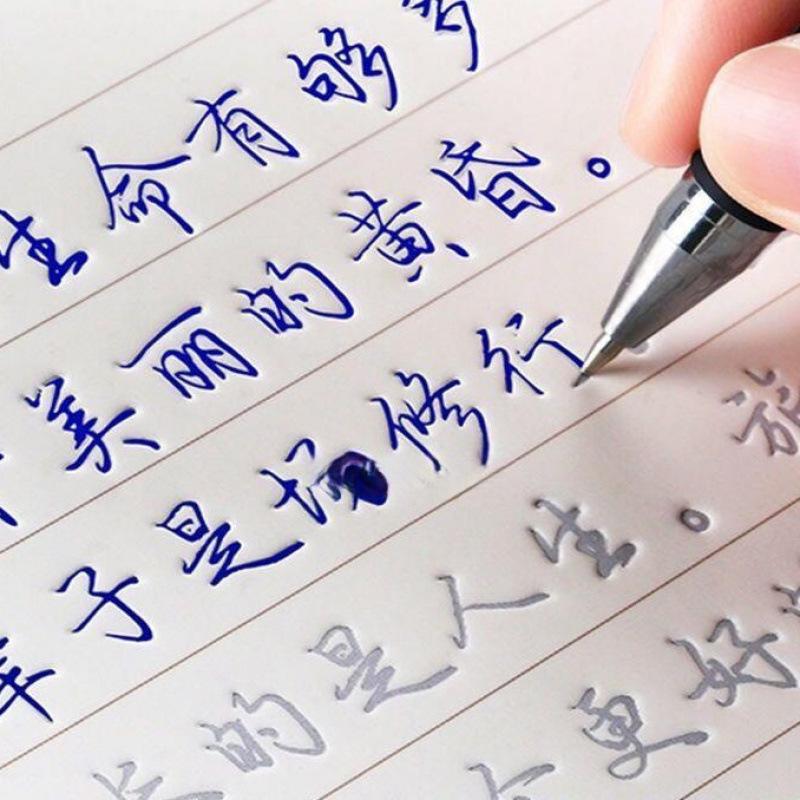 生命有够多
美丽的黄昏。
辈子是场修行
长的是人生。旅
更好